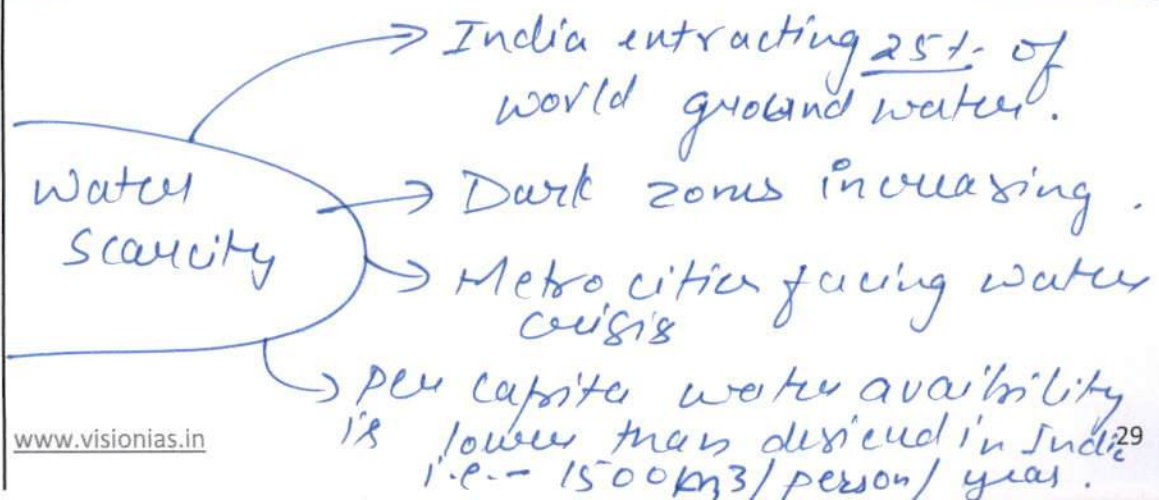 India extracting 25% of
world ground water.
Water
Scarcity
Dark zones increasing.
Metro cities facing water
crisis
per capita water avaibility
is lower than desired in India
i.e. - 1500 km3/person/year.
www.visionias.in
29